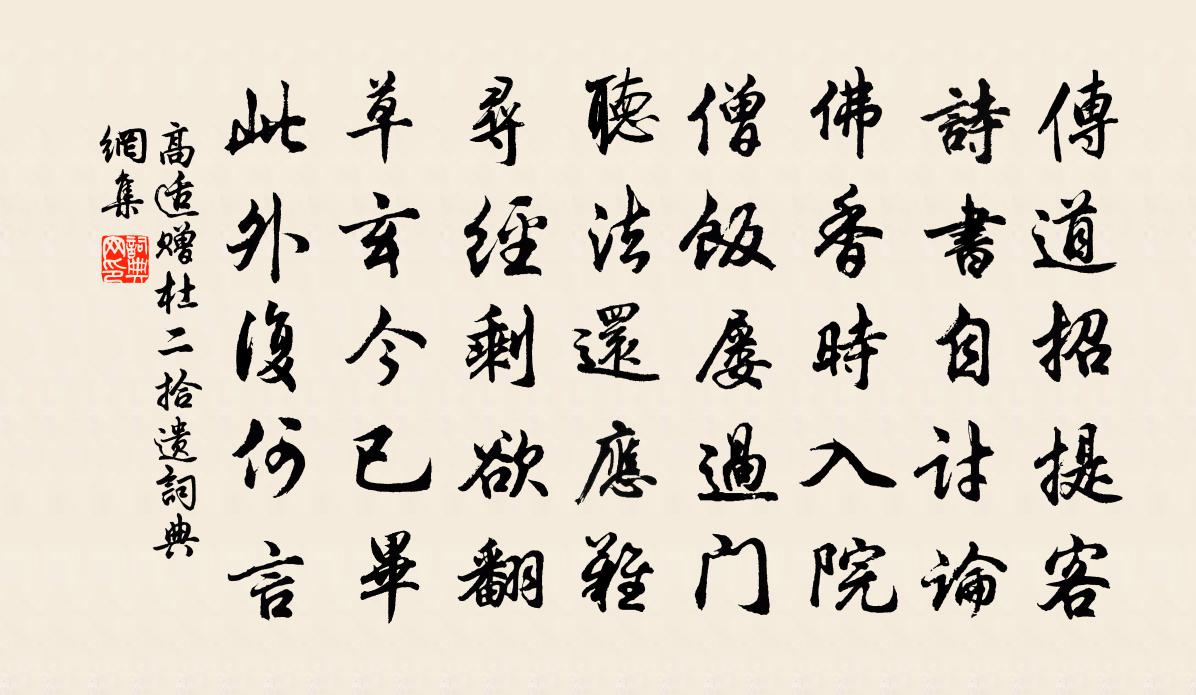 傳道招提客
詩書自討論
佛香時入院
僧飯屡過门
聽法還應難
尋經剩欲翻
草玄今已畢
此外復何言
高适赠杜二拾遗詞典
網集
詞典
网印